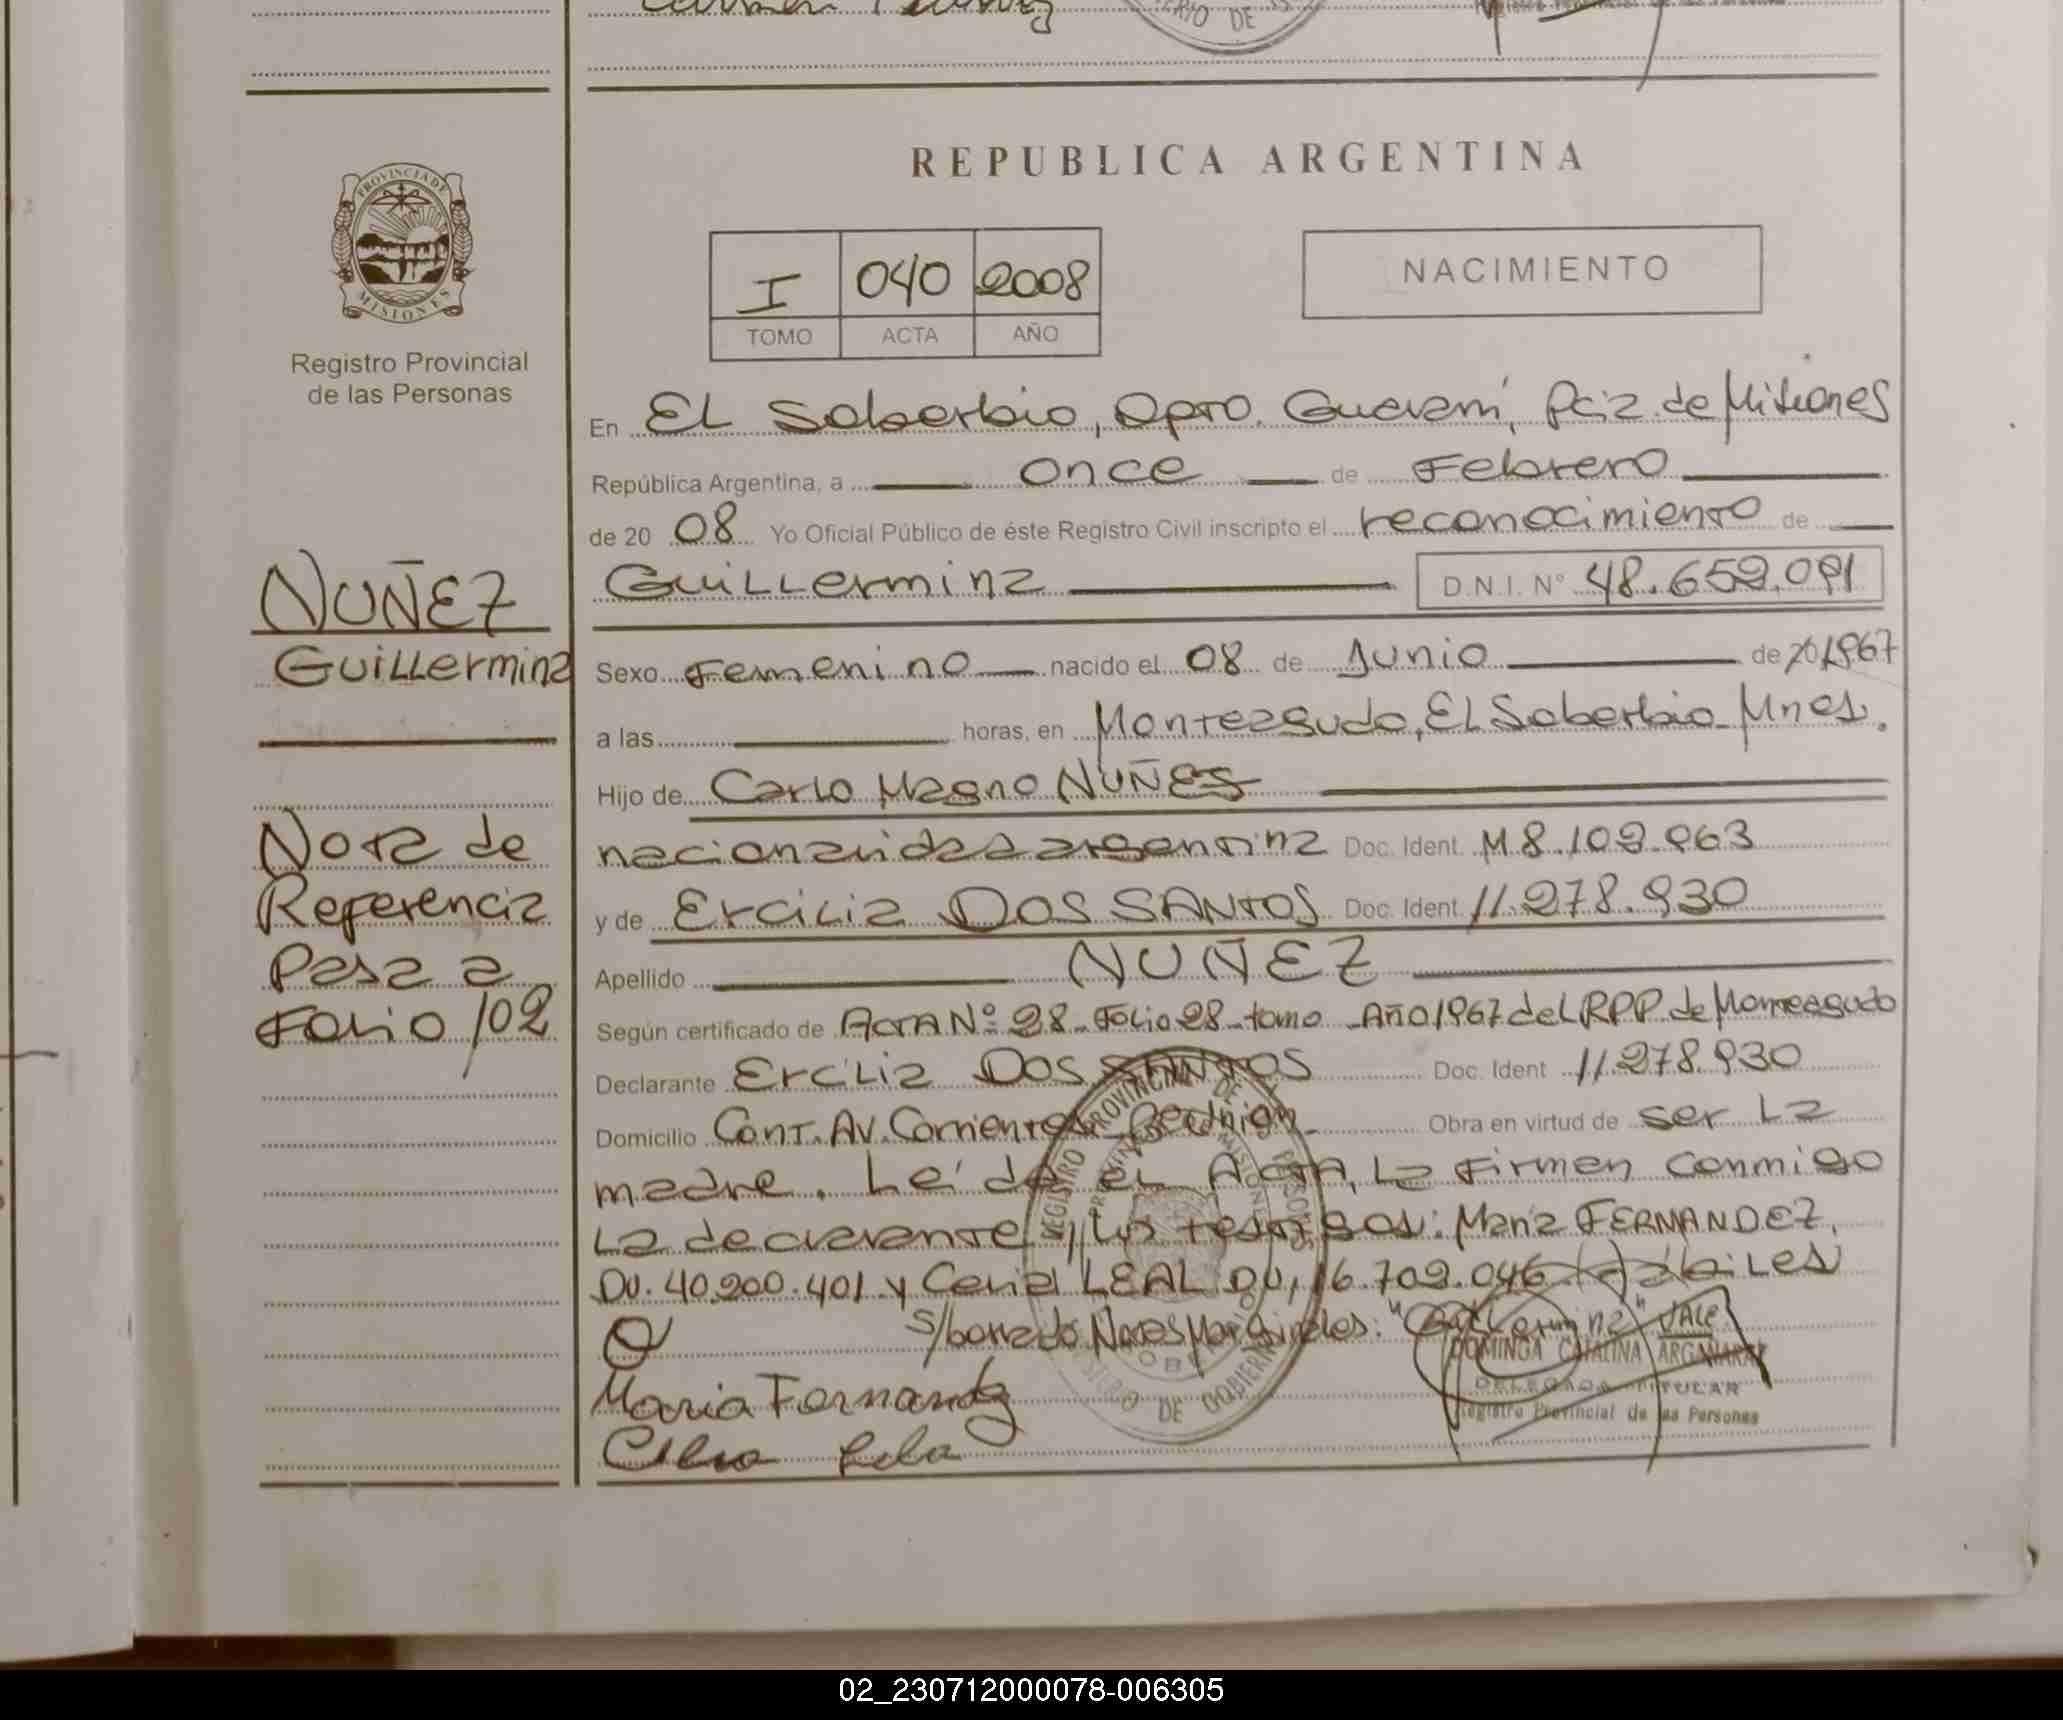 Carmen
MINISTERIO DE
REPUBLICA ARGENTINA
PROVINCIA DE
MISIONES
Registro Provincial
de las Personas
I 040 2008
TOMO ACTA AÑO
NACIMIENTO
En EL Soberbio, Dpto. Guarani, Pcia de Misiones
República Argentina, a once de Febrero
de 2008 Yo Oficial Público de éste Registro Civil inscripto el reconocimiento de
Guillermina D.N.I. Nº 48.659.091
NUÑEZ
Guillermina
Sexo Femenino nacido el 08 de Junio de 20/1967
a las horas, en Monteagudo, EL Soberbio Mnes.
Hijo de Carlo Magno NUÑES
nacionalidad argentina Doc. Ident. M 8.109.963
y de Ercilia DOS SANTOS Doc. Ident. 11.278.930
Apellido NUÑEZ
Según certificado de Acta Nº 28 Folio 28 tomo Año 1967 del RPP de Monteagudo
Declarante Ercilia DOS SANTOS Doc. Ident 11.278.930
Domicilio Cont. Av. Corrientes Obra en virtud de ser La
madre. Leída el Acta, La Firman conmigo
La declarante y Los testigos: Maria FERNANDEZ,
DU. 40.200.401 y LEAL DU, 16.709.046 Hábiles
s/borrado Notas Marginales: "Guillermina" VALE.
Nota de
Referencia
Pasa a
Folio 102
Maria Fernandez
REGISTRO PROVINCIAL DE LAS PERSONAS
PROVINCIA DE MISIONES
MINISTERIO DE GOBIERNO
DOMINGA CATALINA ARGAÑARAZ
DELEGADA TITULAR
Registro Provincial de las Personas
02_230712000078-006305